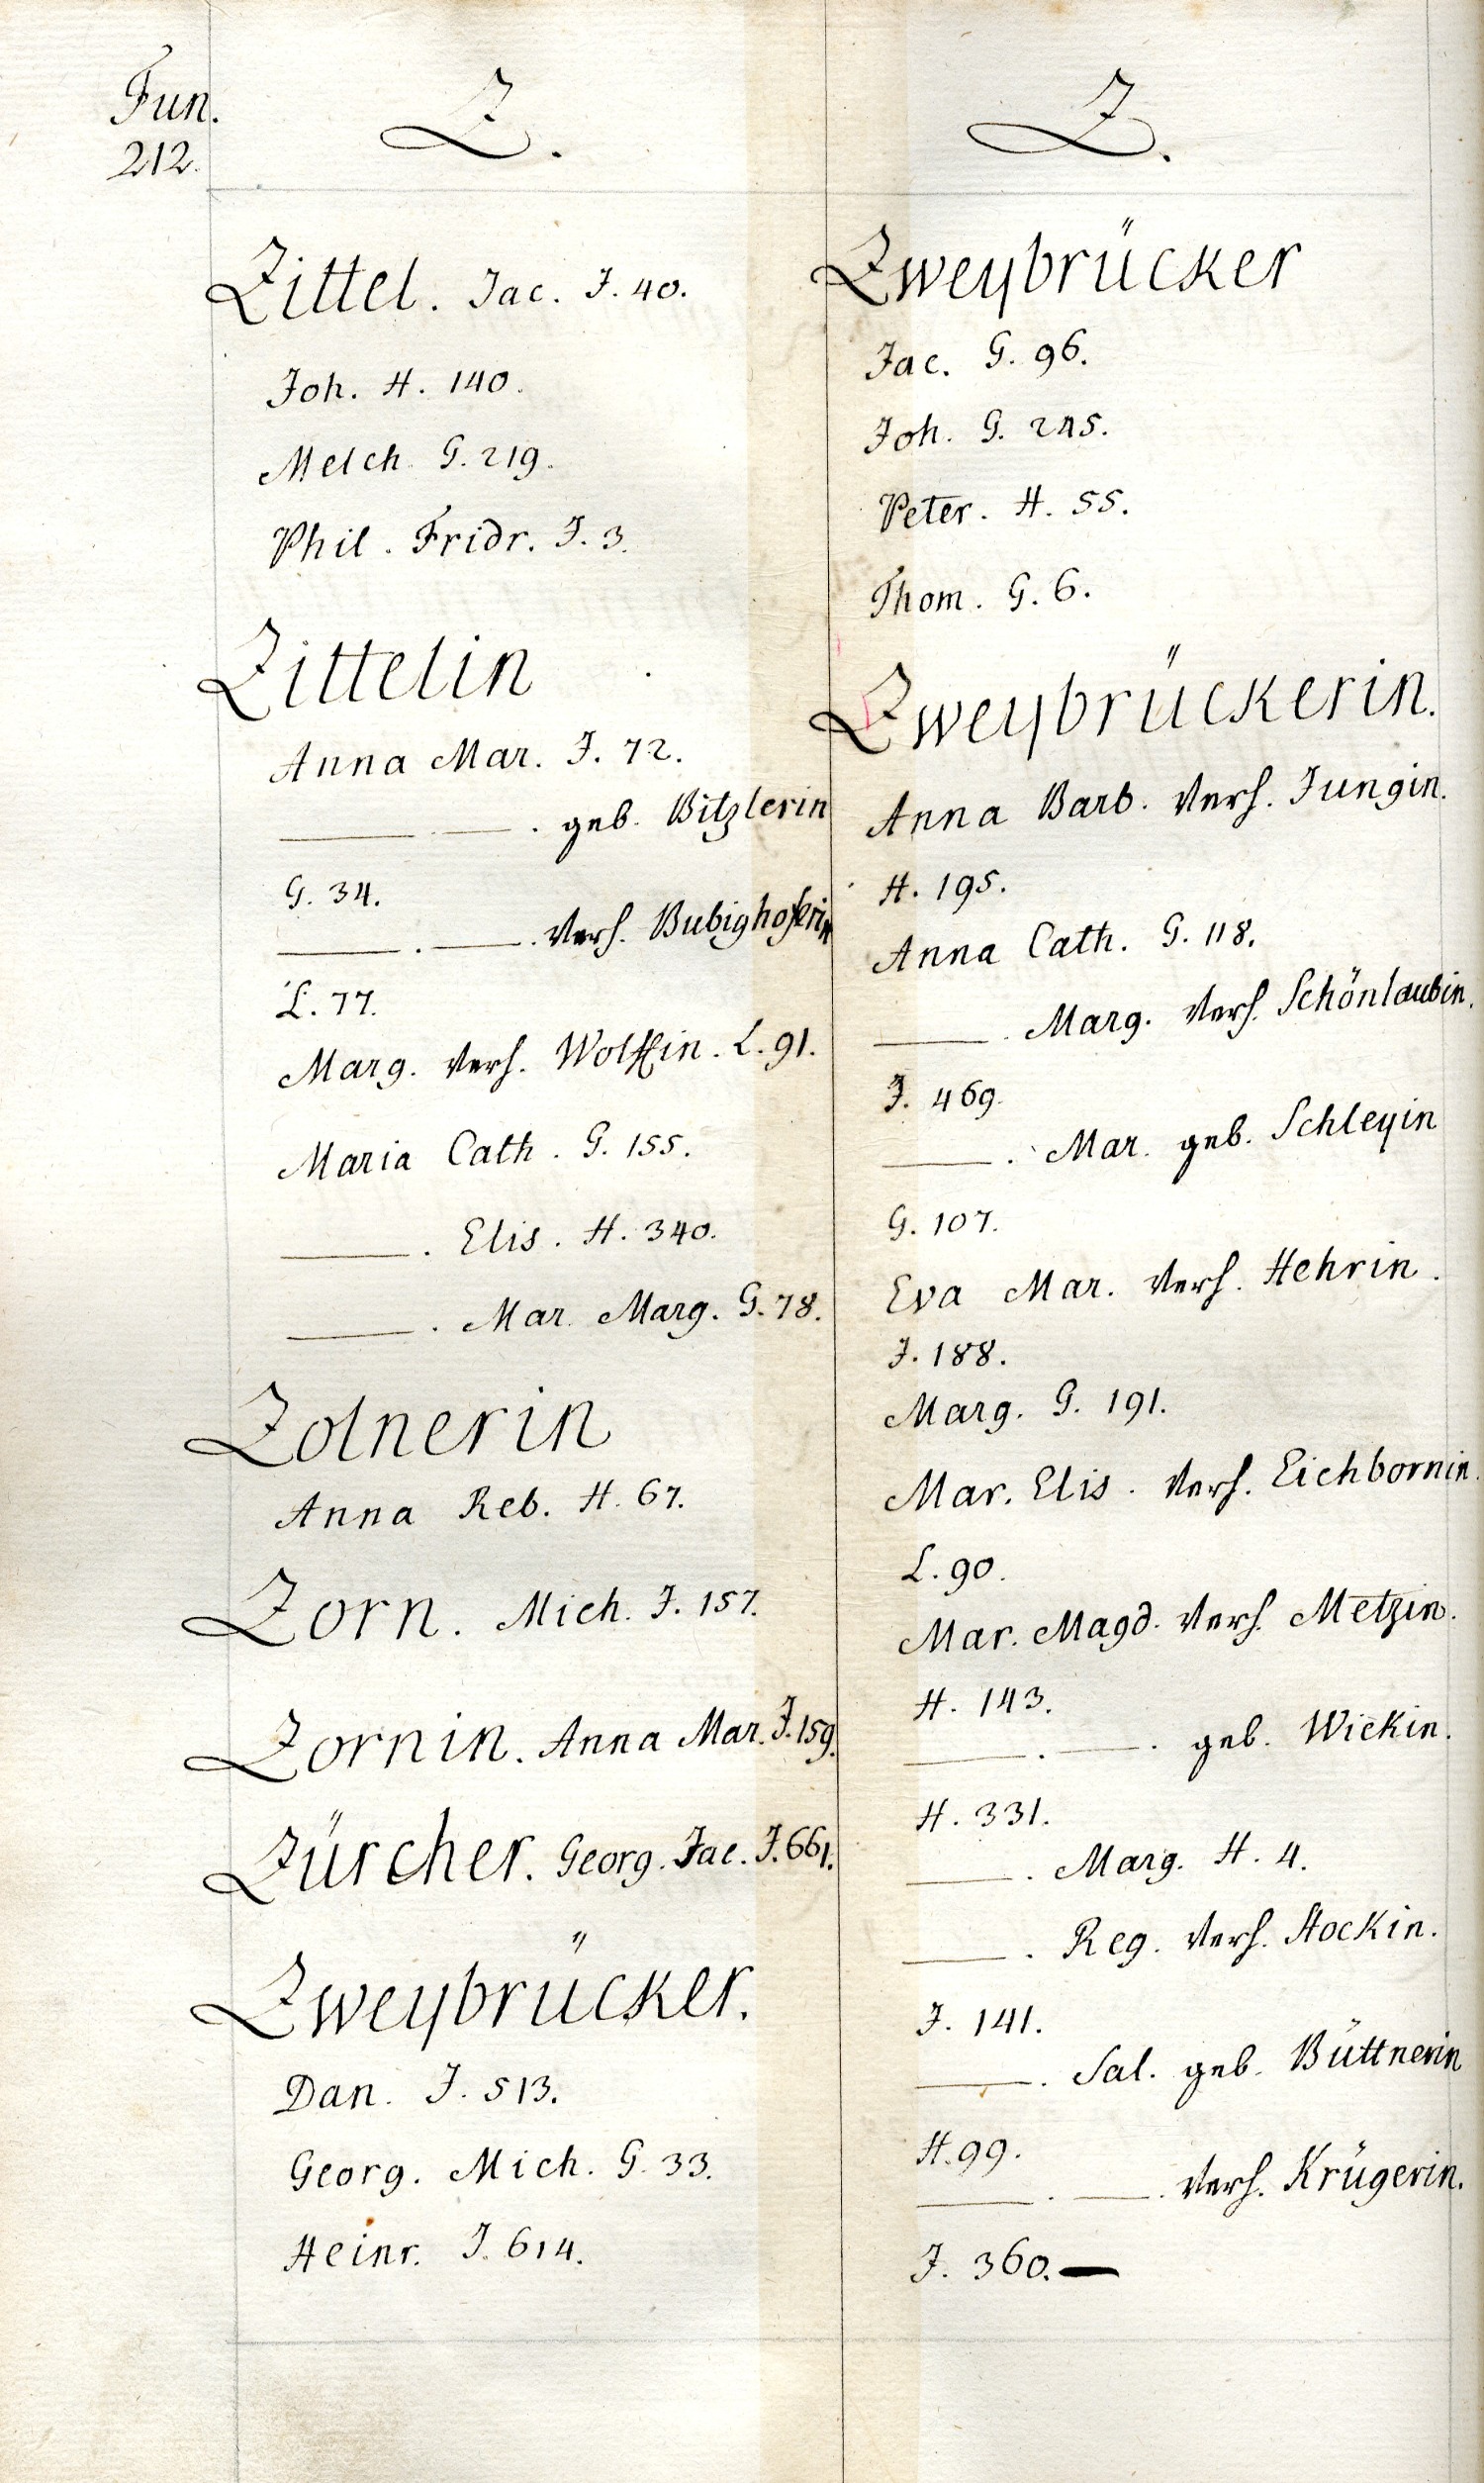 Fun.
212.
Z.
Zittel. Jac. J. 40.
Joh. H. 140.
Melch. G. 219.
Phil. Fridr. J. 3.
Zittelin
Anna Mar. J. 72.
——— . —— . geb. Bitzlerin
G. 34.
——— . —— . verh. Bubighoferin
L. 77.
Marg. verh. Wolffin. L. 91.
Maria Cath. G. 155.
——— . Elis. H. 340.
——— . Mar. Marg. G. 78.
Zolnerin
Anna Reb. H. 67.
Zorn. Mich. J. 157.
Zornin. Anna Mar. J. 159.
Zürcher. Georg. Jac. J. 661.
Zweybrücker.
Dan. J. 513.
Georg. Mich. G. 33.
Heinr. J. 614.
Z.
Zweybrücker
Jac. G. 96.
Joh. G. 245.
Peter. H. 55.
Thom. G. 6.
Zweybrückerin.
Anna Barb. verh. Jungin.
H. 195.
Anna Cath. G. 118.
——— . Marg. verh. Schönlaubin.
J. 469.
——— . Mar. geb. Schleyin
G. 107.
Eva Mar. verh. Hehrin.
J. 188.
Marg. G. 191.
Mar. Elis. verh. Eichbornin.
L. 90.
Mar. Magd. verh. Metzin.
H. 143.
——— . —— . geb. Wickin.
H. 331.
——— . Marg. H. 4.
——— . Reg. verh. Stockin.
J. 141.
——— . Sal. geb. Büttnerin
H. 99.
——— . —— . verh. Krügerin.
J. 360. —